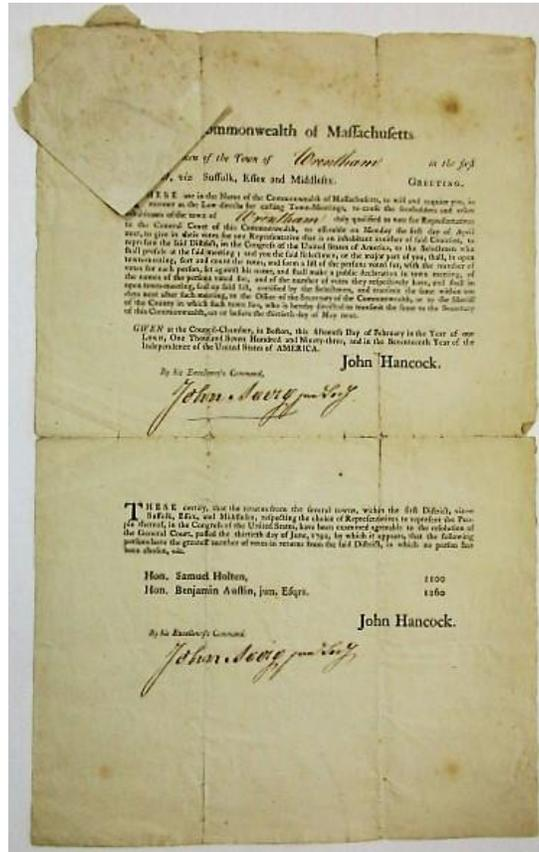 ommonwealth of Maſſachuſetts
men of the Town of Wrentham in the firſt
, viz Suffolk, Eſſex and Middleſex. GREETING.
THESE are in the Name of the Commonwealth of Maſſachuſetts, to will and require you, in
manner as the Law directs for calling Town-Meetings, to cauſe the freeholders and other
inhabitants of the town of Wrentham duly qualified to vote for Repreſentatives
to the General Court of this Commonwealth, to aſſemble on Monday the firſt day of April
next, to give in their votes for one Repreſentative that is an inhabitant of ſaid Counties, to
repreſent the ſaid Diſtrict, in the Congreſs of the United States of America, to the Selectmen who
ſhall preſide at the ſaid meeting; and you the ſaid Selectmen, or the major part of you, ſhall, in open
town-meeting, ſort and count the votes, and form a liſt of the perſons voted for, with the number of
votes for each perſon, ſet againſt his name, and ſhall make a public declaration in town meeting, of
the names of the perſons voted for, and of the number of votes they reſpectively have, and ſhall in
open town-meeting, ſeal up ſaid liſt, certified by the Selectmen, and tranſmit the ſame within ten
days next after ſuch meeting, to the Office of the Secretary of the Commonwealth, or to the Sheriff
of the County in which ſuch town lies, who is hereby directed to tranſmit the ſame to the Secretary
of this Commonwealth, on or before the thirtieth day of May next.
GIVEN at the Council-Chamber, in Boſton, this fifteenth Day of February in the Year of our
LORD, One Thouſand Seven Hundred and Ninety-three, and in the Seventeenth Year of the
Independence of the United States of AMERICA.
John Hancock.
By his Excellency's Command,
John Avery jun Sec'y
THESE certify, that the returns from the ſeveral towns, within the firſt Diſtrict, viz—
Suffolk, Eſſex, and Middleſex, reſpecting the choice of Repreſentatives to repreſent the Peo-
ple thereof, in the Congreſs of the United States, have been examined agreeable to the reſolution of
the General Court, paſſed the thirtieth day of June, 1792, by which it appears, that the following
perſons have the greateſt number of votes in returns from the ſaid Diſtrict, in which no perſon has
been choſen, viz.
Hon. Samuel Holten, 1100
Hon. Benjamin Auſtin, jun. Eſqrs. 1260
John Hancock.
By his Excellency's Command.
John Avery jun Sec'y